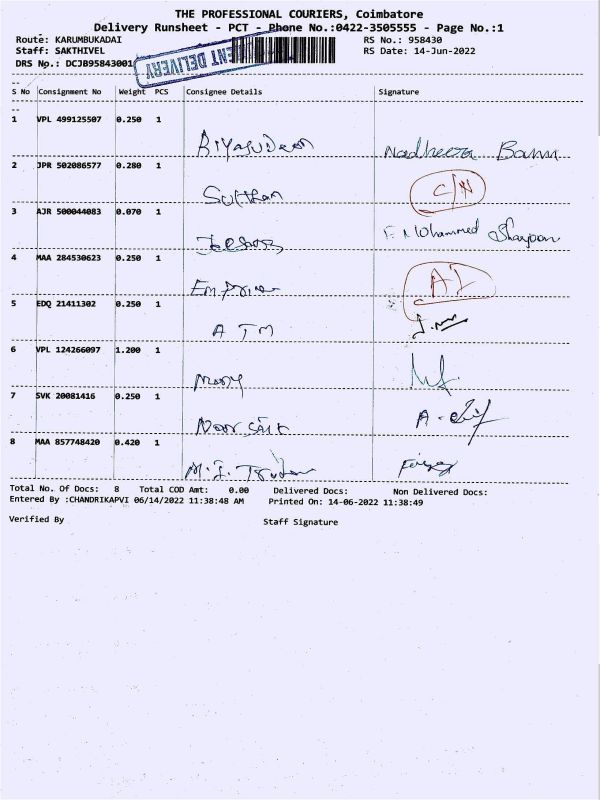 THE PROFESSIONAL COURIERS, Coimbatore
Delivery Runsheet - PCT - Phone No.:0422-3505555 - Page No.:1
Route: KARUMBUKADAI RS No.: 958430
Staff: SAKTHIVEL RS Date: 14-Jun-2022
DRS No.: DCJB95843001
ENT DELIVERY
S No Consignment No Weight PCS Consignee Details Signature
1 VPL 499125507 0.250 1 Riyasudeen Nadheera Banu
2 JPR 502086577 0.280 1 Sulthan C/N
3 AJR 500044083 0.070 1 Mohammed
4 MAA 284530623 0.250 1 A1
5 EDQ 21411302 0.250 1 ATM
6 VPL 124266097 1.200 1 Mary
7 SVK 20081416 0.250 1 Noor sait
8 MAA 857748420 0.420 1 M.I.
Total No. Of Docs: 8 Total COD Amt: 0.00 Delivered Docs: Non Delivered Docs:
Entered By :CHANDRIKAPVI 06/14/2022 11:38:48 AM Printed On: 14-06-2022 11:38:49
Verified By Staff Signature